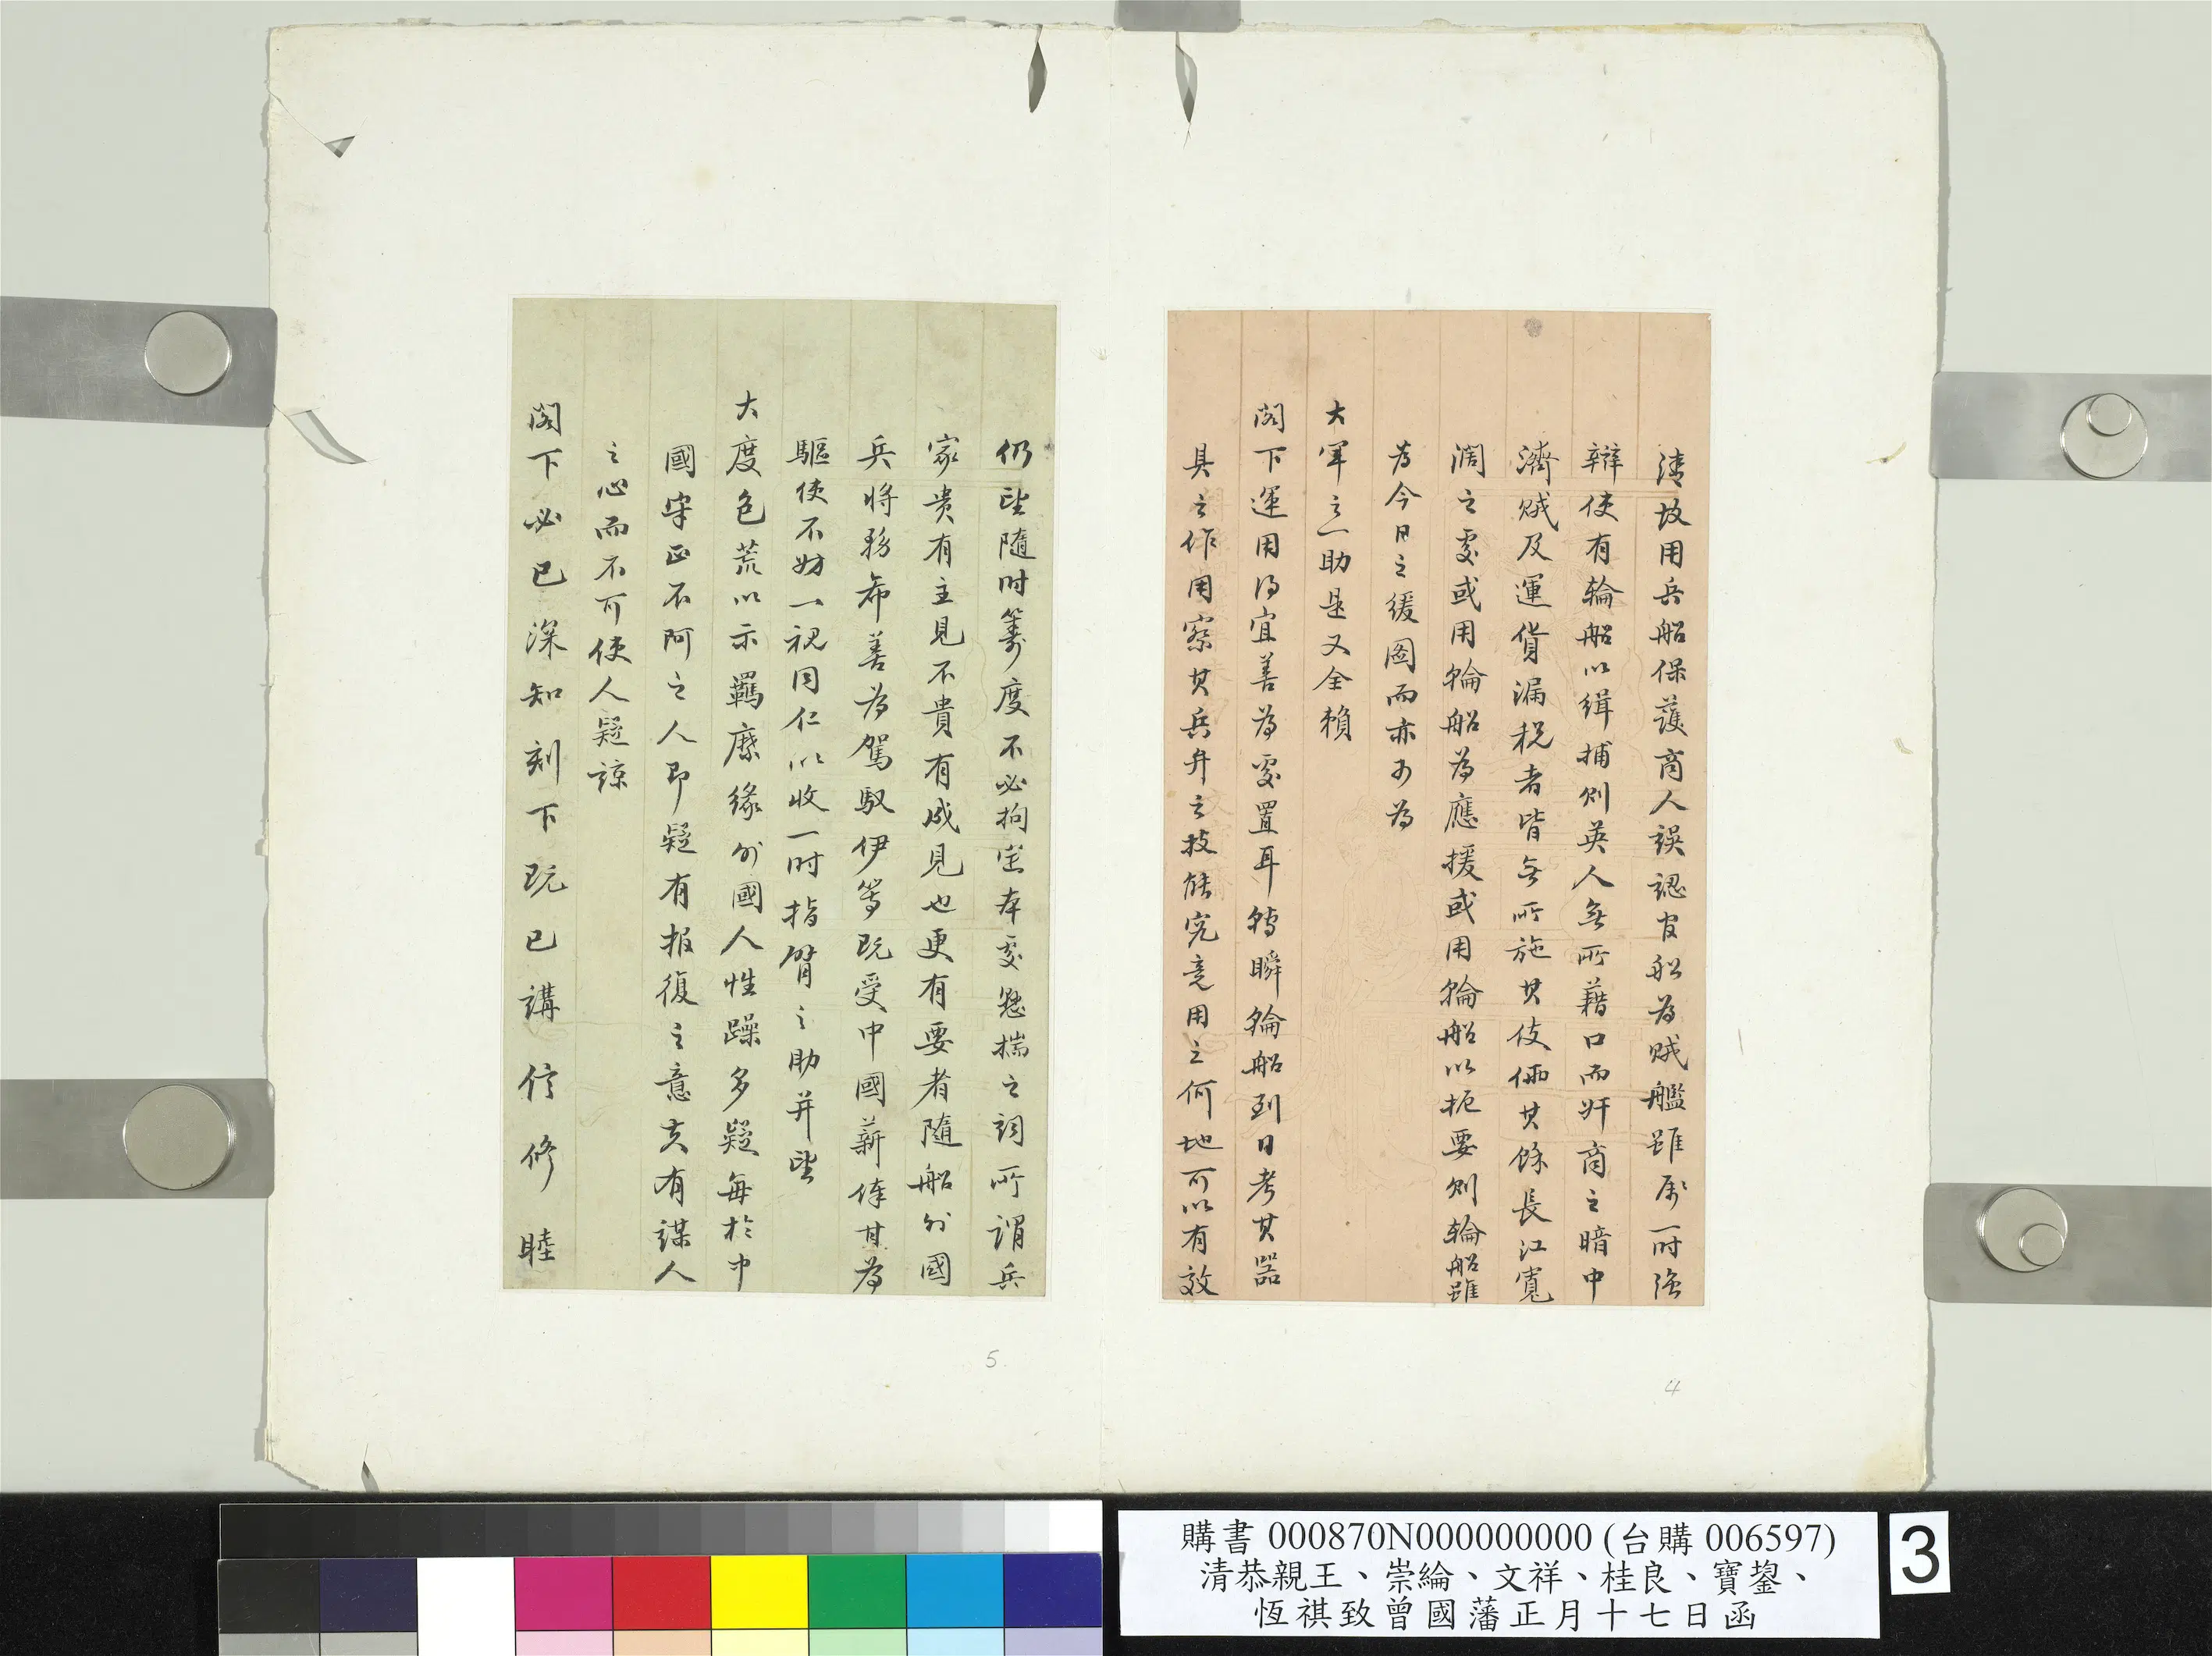 清故用兵船保護商人誤認官船為賊艦雖屬一時強
辯使有輪船以緝捕則英人無所藉口而奸商之暗中
濟賊及運貨漏稅者皆無所施其伎倆其餘長江寬
濶之處或用輪船為應援或用輪船以扼要則輪船雖
為今日之緩圖而亦可為
大軍之一助是又全賴
閣下運用得宜善為處置耳轉瞬輪船到日考其器
具之作用察其兵弁之技能究竟用之何地可以有效
4
仍望隨時籌度不必拘定本處懸揣之詞所謂兵
家貴有主見不貴有成見也更有要者隨船外國
兵將務希善為駕馭伊等既受中國薪俸甘為
驅使不妨一視同仁以收一時指臂之助并望
大度包荒以示羈縻緣外國人性躁多疑每於中
國牢正不阿之人即疑有报復之意夫有謀人
之心而不可使人疑諒
閣下必已深知刻下既已講信修睦
5
購書 000870N000000000 (台購 006597)
清恭親王、崇綸、文祥、桂良、寶鋆、
恆祺致曾國藩正月十七日函
3